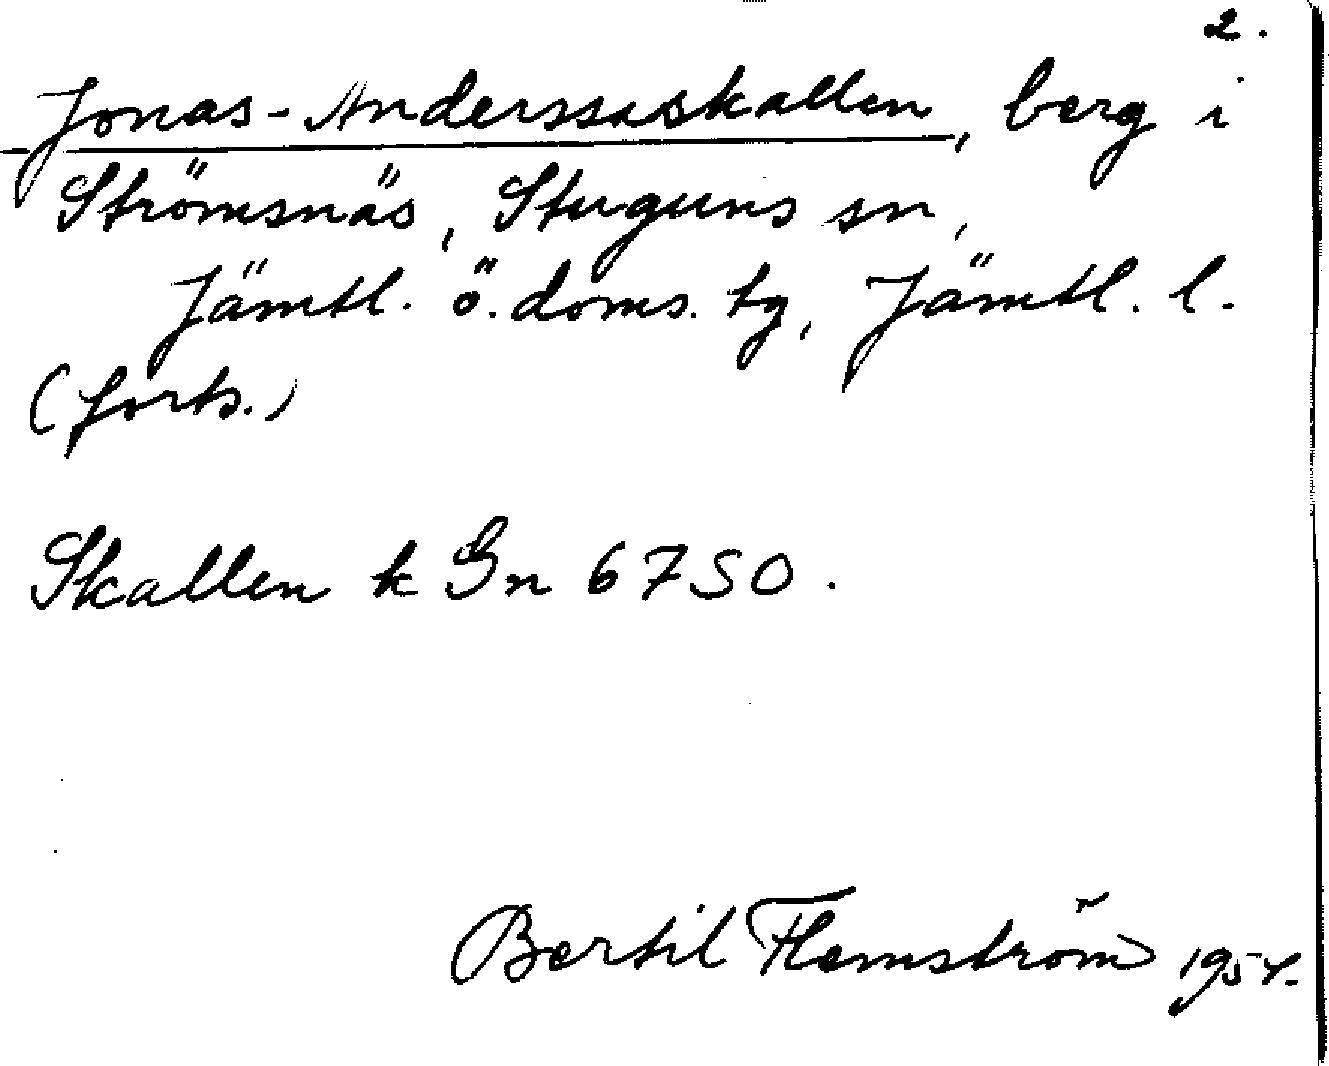 2.
Jonas-Anderssaskallen, berg i
Strömsnäs, Stuguns sn,
Jämtl. ö. doms. tg, Jämtl. l.
(forts.)
Skallen k Gn 6750.
Bertil Flemström 1954.